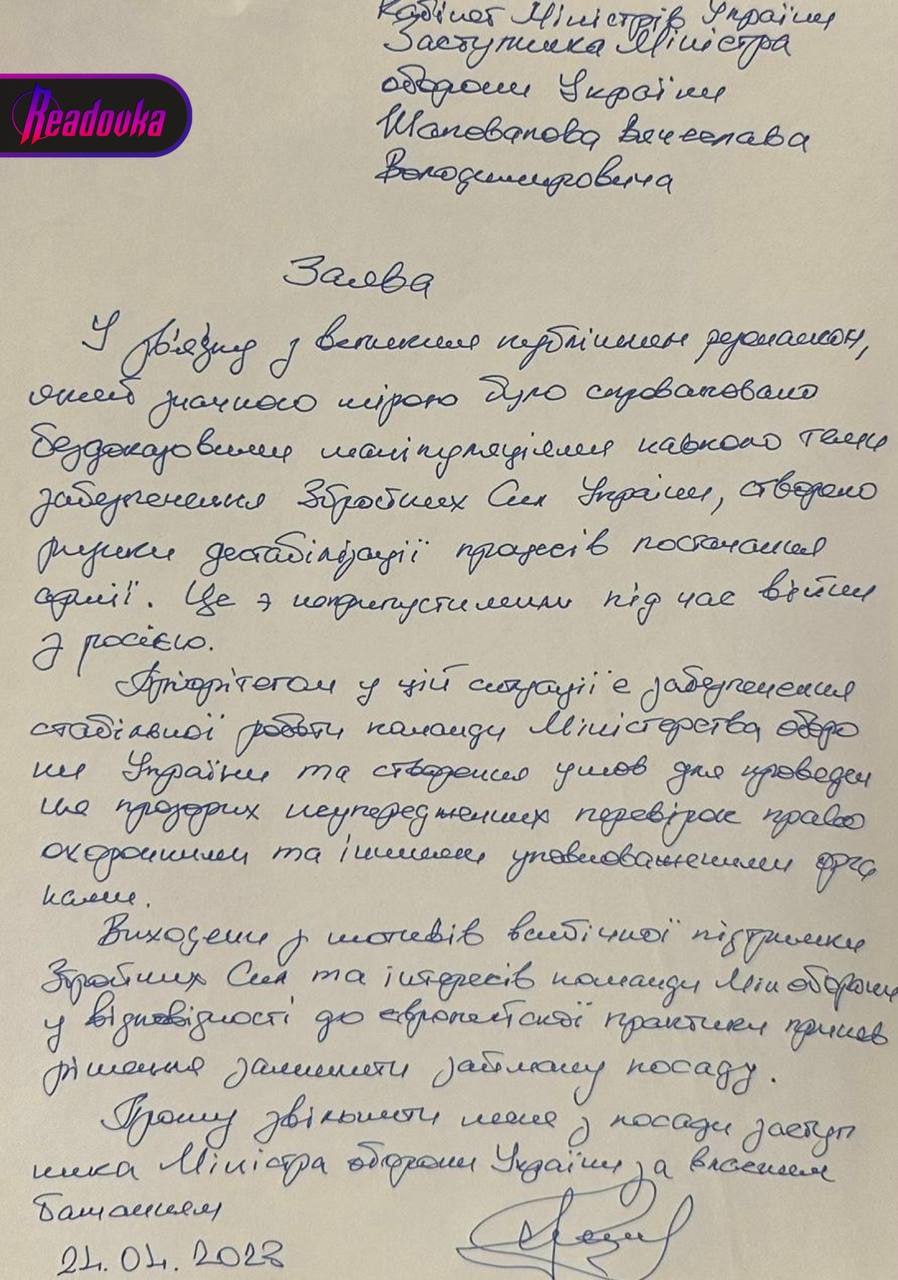 Кабінет Міністрів України
Заступника Міністра
оборони України
Шаповалова Вячеслава
Володимировича
Readovka
Заява
У зв'язку з великим публічним резонансом,
який значною мірою було спровоковано
бездоказовими маніпуляціями навколо теми
забезпечення Збройних Сил України, створено
ризики дестабілізації процесів постачання
армії. Це є неприпустимим під час війни
з росією.
Пріорітетом у цій ситуації є забезпечення
стабільної роботи команди Міністерства оборо
ни України та створення умов для проведен
ня прозорих неупереджених перевірок право
охоронними та іншими уповноваженими орга
нами.
Виходячи з мотивів всебічної підтримки
Збройних Сил та інтересів команди Міноборони
у відповідності до європейської практики прийняв
рішення залишити займану посаду.
Прошу звільнити мене з посади заступ
ника Міністра оборони України за власним
бажанням
24.01.2023